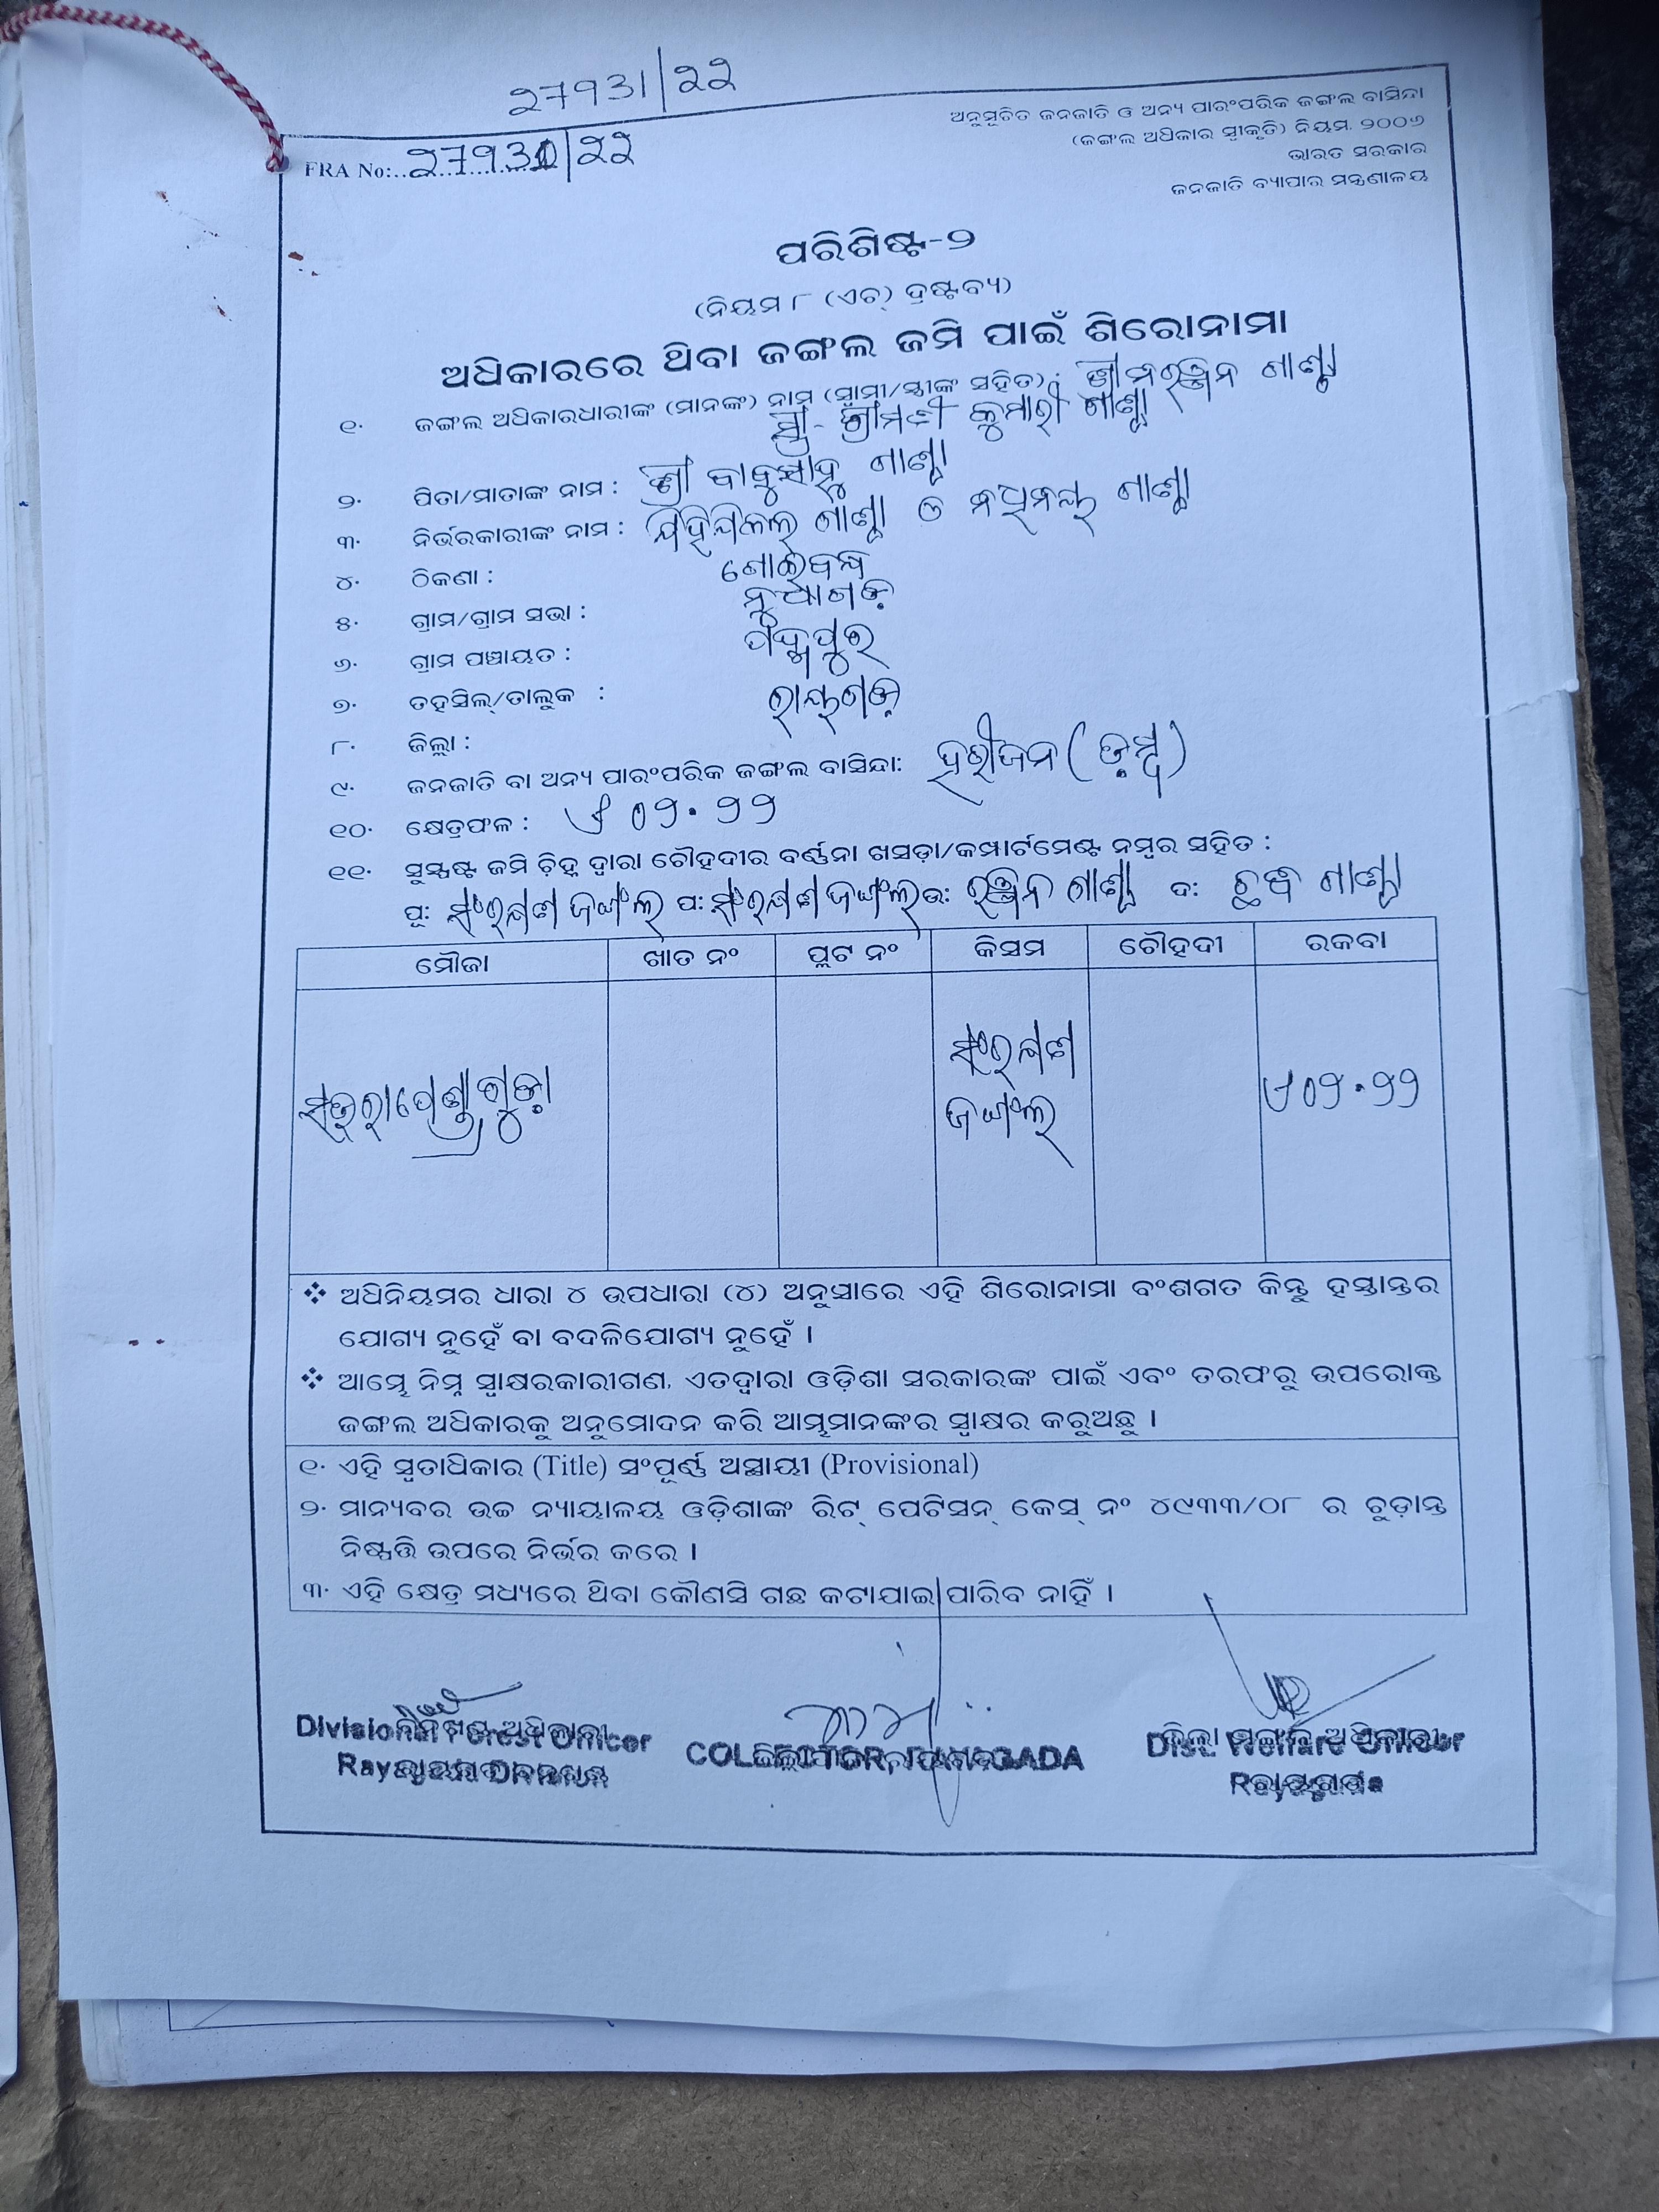 ୨7931/22
FRA No:..୨7931/22
ଅନୁସୂଚିତ ଜନଜାତି ଓ ଅନ୍ୟ ପାରଂପରିକ ଜଙ୍ଗଲ ବାସିନ୍ଦା
(ଜଙ୍ଗଲ ଅଧିକାର ସ୍ୱୀକୃତି) ନିୟମ, ୨୦୦୬
ଭାରତ ସରକାର
ଜନଜାତି ବ୍ୟାପାର ମନ୍ତ୍ରଣାଳୟ
ପରିଶିଷ୍ଟ-୨
(ନିୟମ ୮ (ଏଚ୍) ଦ୍ରଷ୍ଟବ୍ୟ)
ଅଧିକାରରେ ଥିବା ଜଙ୍ଗଲ ଜମି ପାଇଁ ଶିରୋନାମା
୧. ଜଙ୍ଗଲ ଅଧିକାରଧାରୀଙ୍କ (ମାନଙ୍କ) ନାମ (ସ୍ୱାମୀ/ସ୍ତ୍ରୀଙ୍କ ସହିତ) : ଶ୍ରୀ ମନରଞ୍ଜନ ଗାଣ୍ଡା
ସ୍ତ୍ରୀ- ଶ୍ରୀମତୀ କୁମାରୀ ଗାଣ୍ଡା
୨. ପିତା/ମାତାଙ୍କ ନାମ : ଶ୍ରୀ ବାବୁସାହୁ ଗାଣ୍ଡା
୩. ନିର୍ଭରକାରୀଙ୍କ ନାମ : ଗାଣ୍ଡା ଓ ଗାଣ୍ଡା
୪. ଠିକଣା :
୫. ଗ୍ରାମ/ଗ୍ରାମ ସଭା : ନୁଆଗଡ଼
୬. ଗ୍ରାମ ପଞ୍ଚାୟତ : ପଦ୍ମପୁର
୭. ତହସିଲ୍/ତାଲୁକ : ରାୟଗଡ଼
୮. ଜିଲ୍ଲା :
୯. ଜନଜାତି ବା ଅନ୍ୟ ପାରଂପରିକ ଜଙ୍ଗଲ ବାସିନ୍ଦା: ହରୀଜନ (ଡ଼ମ୍ବ)
୧୦. କ୍ଷେତ୍ରଫଳ : ଏ 0୨.୨୨
୧୧. ସୁସ୍ପଷ୍ଟ ଜମି ଚ଼ିହ୍ନ ଦ୍ୱାରା ଚୌହଦୀର ବର୍ଣ୍ଣନା ଖସଡ଼ା/କମ୍ପାର୍ଟମେଣ୍ଟ ନମ୍ବର ସହିତ :
ପୂ: ସଂରକ୍ଷଣ ଜଙ୍ଗଲ ପ: ସଂରକ୍ଷଣ ଜଙ୍ଗଲ ଉ: ରଞ୍ଜନ ଗାଣ୍ଡା ଦ: ଗାଣ୍ଡା
ମୌଜା ଖାତ ନଂ ପ୍ଲଟ ନଂ କିସମ ଚୌହଦୀ ରକବା
ସଂରକ୍ଷଣ
ଜଙ୍ଗଲ
ଏ 0୨.୨୨
❖ ଅଧିନିୟମର ଧାରା ୪ ଉପଧାରା (୪) ଅନୁସାରେ ଏହି ଶିରୋନାମା ବଂଶଗତ କିନ୍ତୁ ହସ୍ତାନ୍ତର
ଯୋଗ୍ୟ ନୁହେଁ ବା ବଦଳିଯୋଗ୍ୟ ନୁହେଁ ।
❖ ଆମ୍ଭେ ନିମ୍ନ ସ୍ୱାକ୍ଷରକାରୀଗଣ, ଏତଦ୍ୱାରା ଓଡ଼ିଶା ସରକାରଙ୍କ ପାଇଁ ଏବଂ ତରଫରୁ ଉପରୋକ୍ତ
ଜଙ୍ଗଲ ଅଧିକାରକୁ ଅନୁମୋଦନ କରି ଆମ୍ଭମାନଙ୍କର ସ୍ୱାକ୍ଷର କରୁଅଛୁ ।
୧. ଏହି ସ୍ୱତାଧିକାର (Title) ସଂପୂର୍ଣ୍ଣ ଅସ୍ଥାୟୀ (Provisional)
୨. ମାନ୍ୟବର ଉଚ୍ଚ ନ୍ୟାୟାଳୟ ଓଡ଼ିଶାଙ୍କ ରିଟ୍ ପେଟିସନ୍ କେସ୍ ନଂ ୪୯୩୩/୦୮ ର ଚୁଡ଼ାନ୍ତ
ନିଷ୍ପତ୍ତି ଉପରେ ନିର୍ଭର କରେ ।
୩. ଏହି କ୍ଷେତ୍ର ମଧ୍ୟରେ ଥିବା କୌଣସି ଗଛ କଟାଯାଇ ପାରିବ ନାହିଁ ।
Divisional Forest Officer
Rayagada Division
COLLECTOR, RAYAGADA
Dist. Welfare Officer
Rayagada